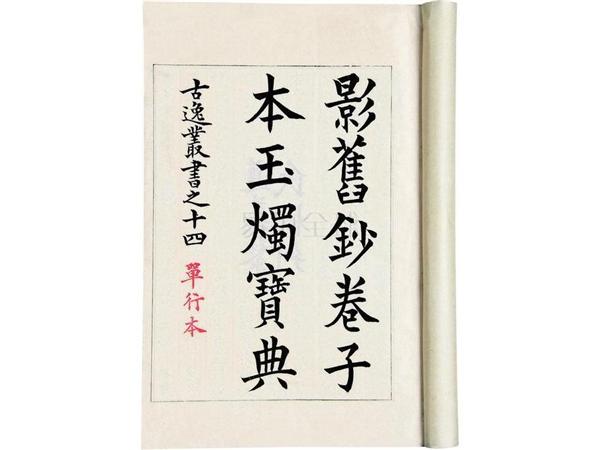 影舊鈔卷子
本玉燭寶典
古逸叢書之十四 單行本